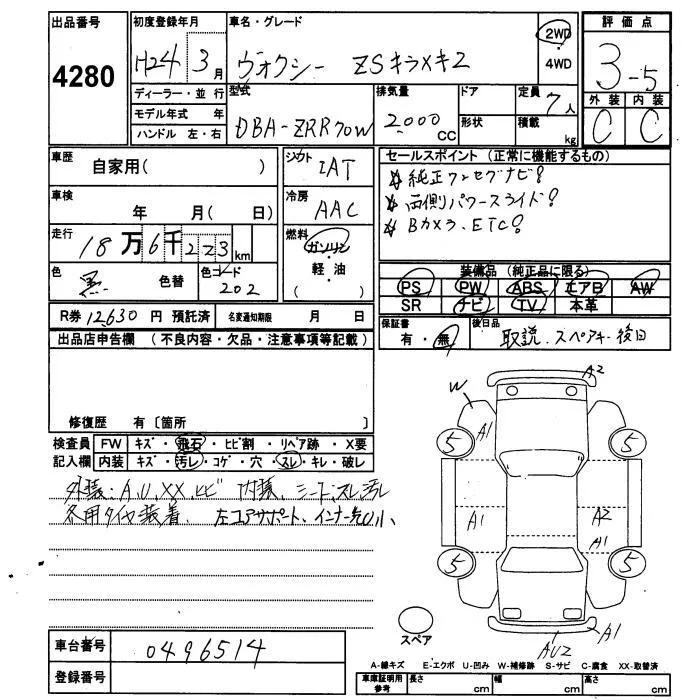 出品番号 初度登録年月 車名・グレード 評価点
4280 H24年 3月 ヴォクシー ZSキラメキ2 2WD・4WD 3-5
ディーラー・並行 型式 排気量 ドア 定員 7人 外装 内装
モデル年式 年 DBA-ZRR70W 2000CC 形状 積載 kg C C
ハンドル 左・右
車歴 自家用( ) シフト IAT セールスポイント (正常に機能するもの)
☆ 純正フルセグナビ!
車検 年 月( 日) 冷房 AAC ☆ 両側パワースライド!
☆ Bカメラ、ETC!
走行 18万6千223km 燃料 ガソリン
軽・油
( )
色 黒 色替 色コード 202 装備品 (純正品に限る)
PS PW ABS エアB AW
SR ナビ TV 本革
R券 12630 円 預託済 名変通知期限 月 日 保証書 有・無 後日品 取説、スペアキー後日
出品店申告欄 (不良内容・欠品・注意事項等記載)
修復歴 有〔箇所 〕
検査員 FW キズ・飛石・ヒビ割・リペア跡・X要
記入欄 内装 キズ・汚レ・コゲ・穴・スレ・キレ・破レ
外装:A、U、XX、ヒビ 内装、シートスレ汚レ
冬用タイヤ装着、左コアサポート、インナー先U小、
A2
W
A1
5 5
A1 A2
A1
5 5
スペア
A1
AU2
車台番号 0496514
登録番号
A-線キズ E-エクボ U-凹み W-補修跡 S-サビ C-腐食 XX-取替済
車庫証明用参考 長さ cm 幅 cm 高さ cm